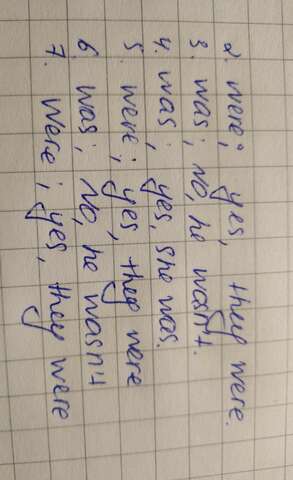 2. were; yes, they were.
3. was; No, he wasn't.
4. was; yes, she was.
5. were; yes, they were
6. was; No, he wasn't
7. were; yes, they were